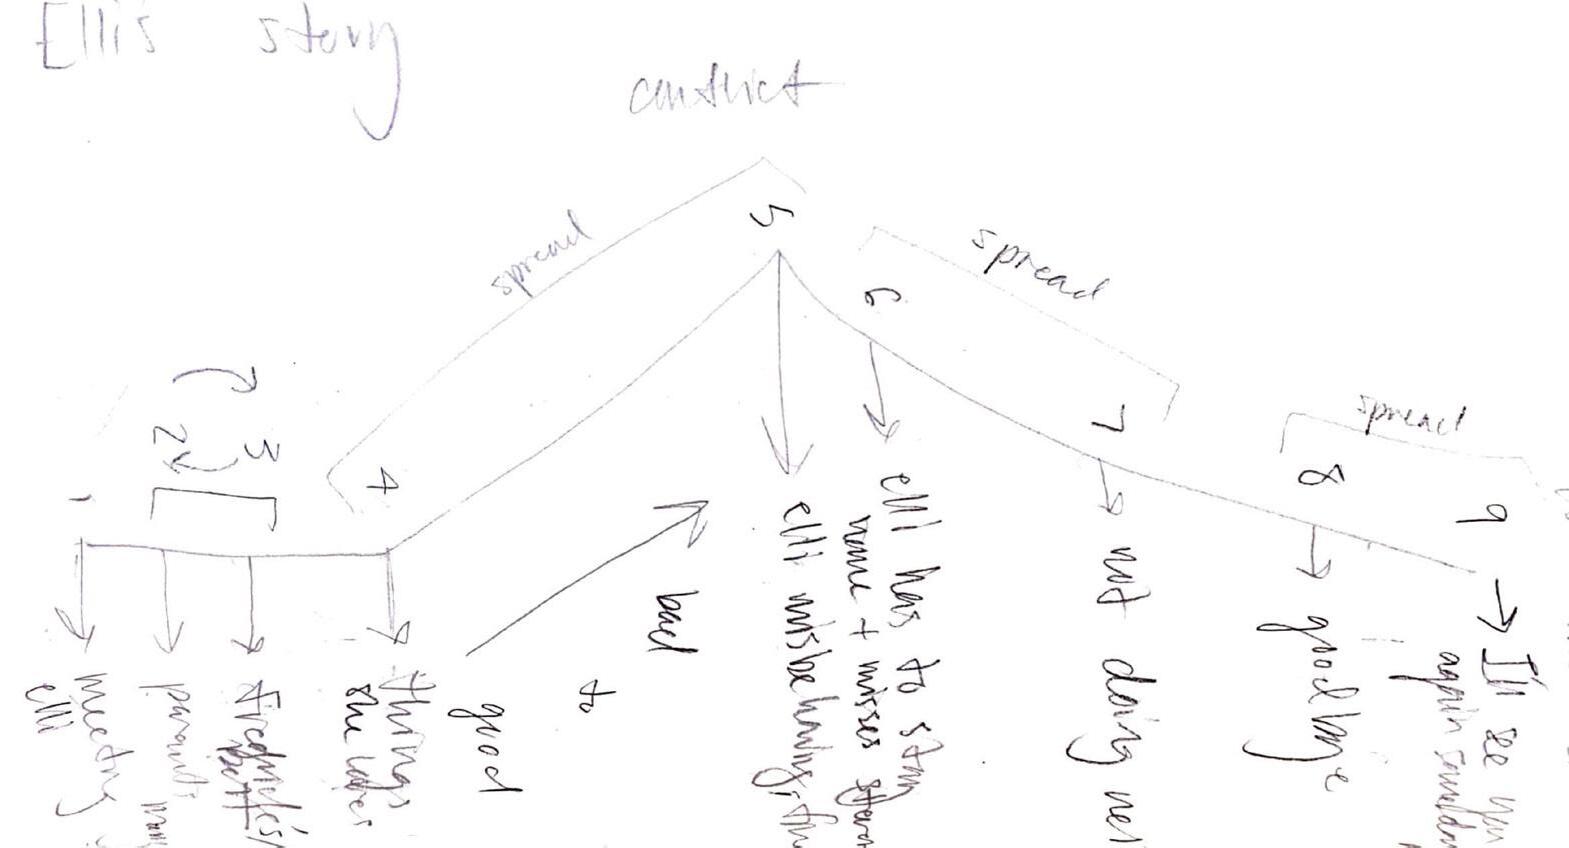 Elli's story
conflict
spread
spread
spread
1
2
3
4
5
6
7
8
9
meeting
elli
parents
things
she likes
good
to
bad
elli misbehaving
elli has to stay
home + misses
not doing
goodbye
I'll see you
again someday